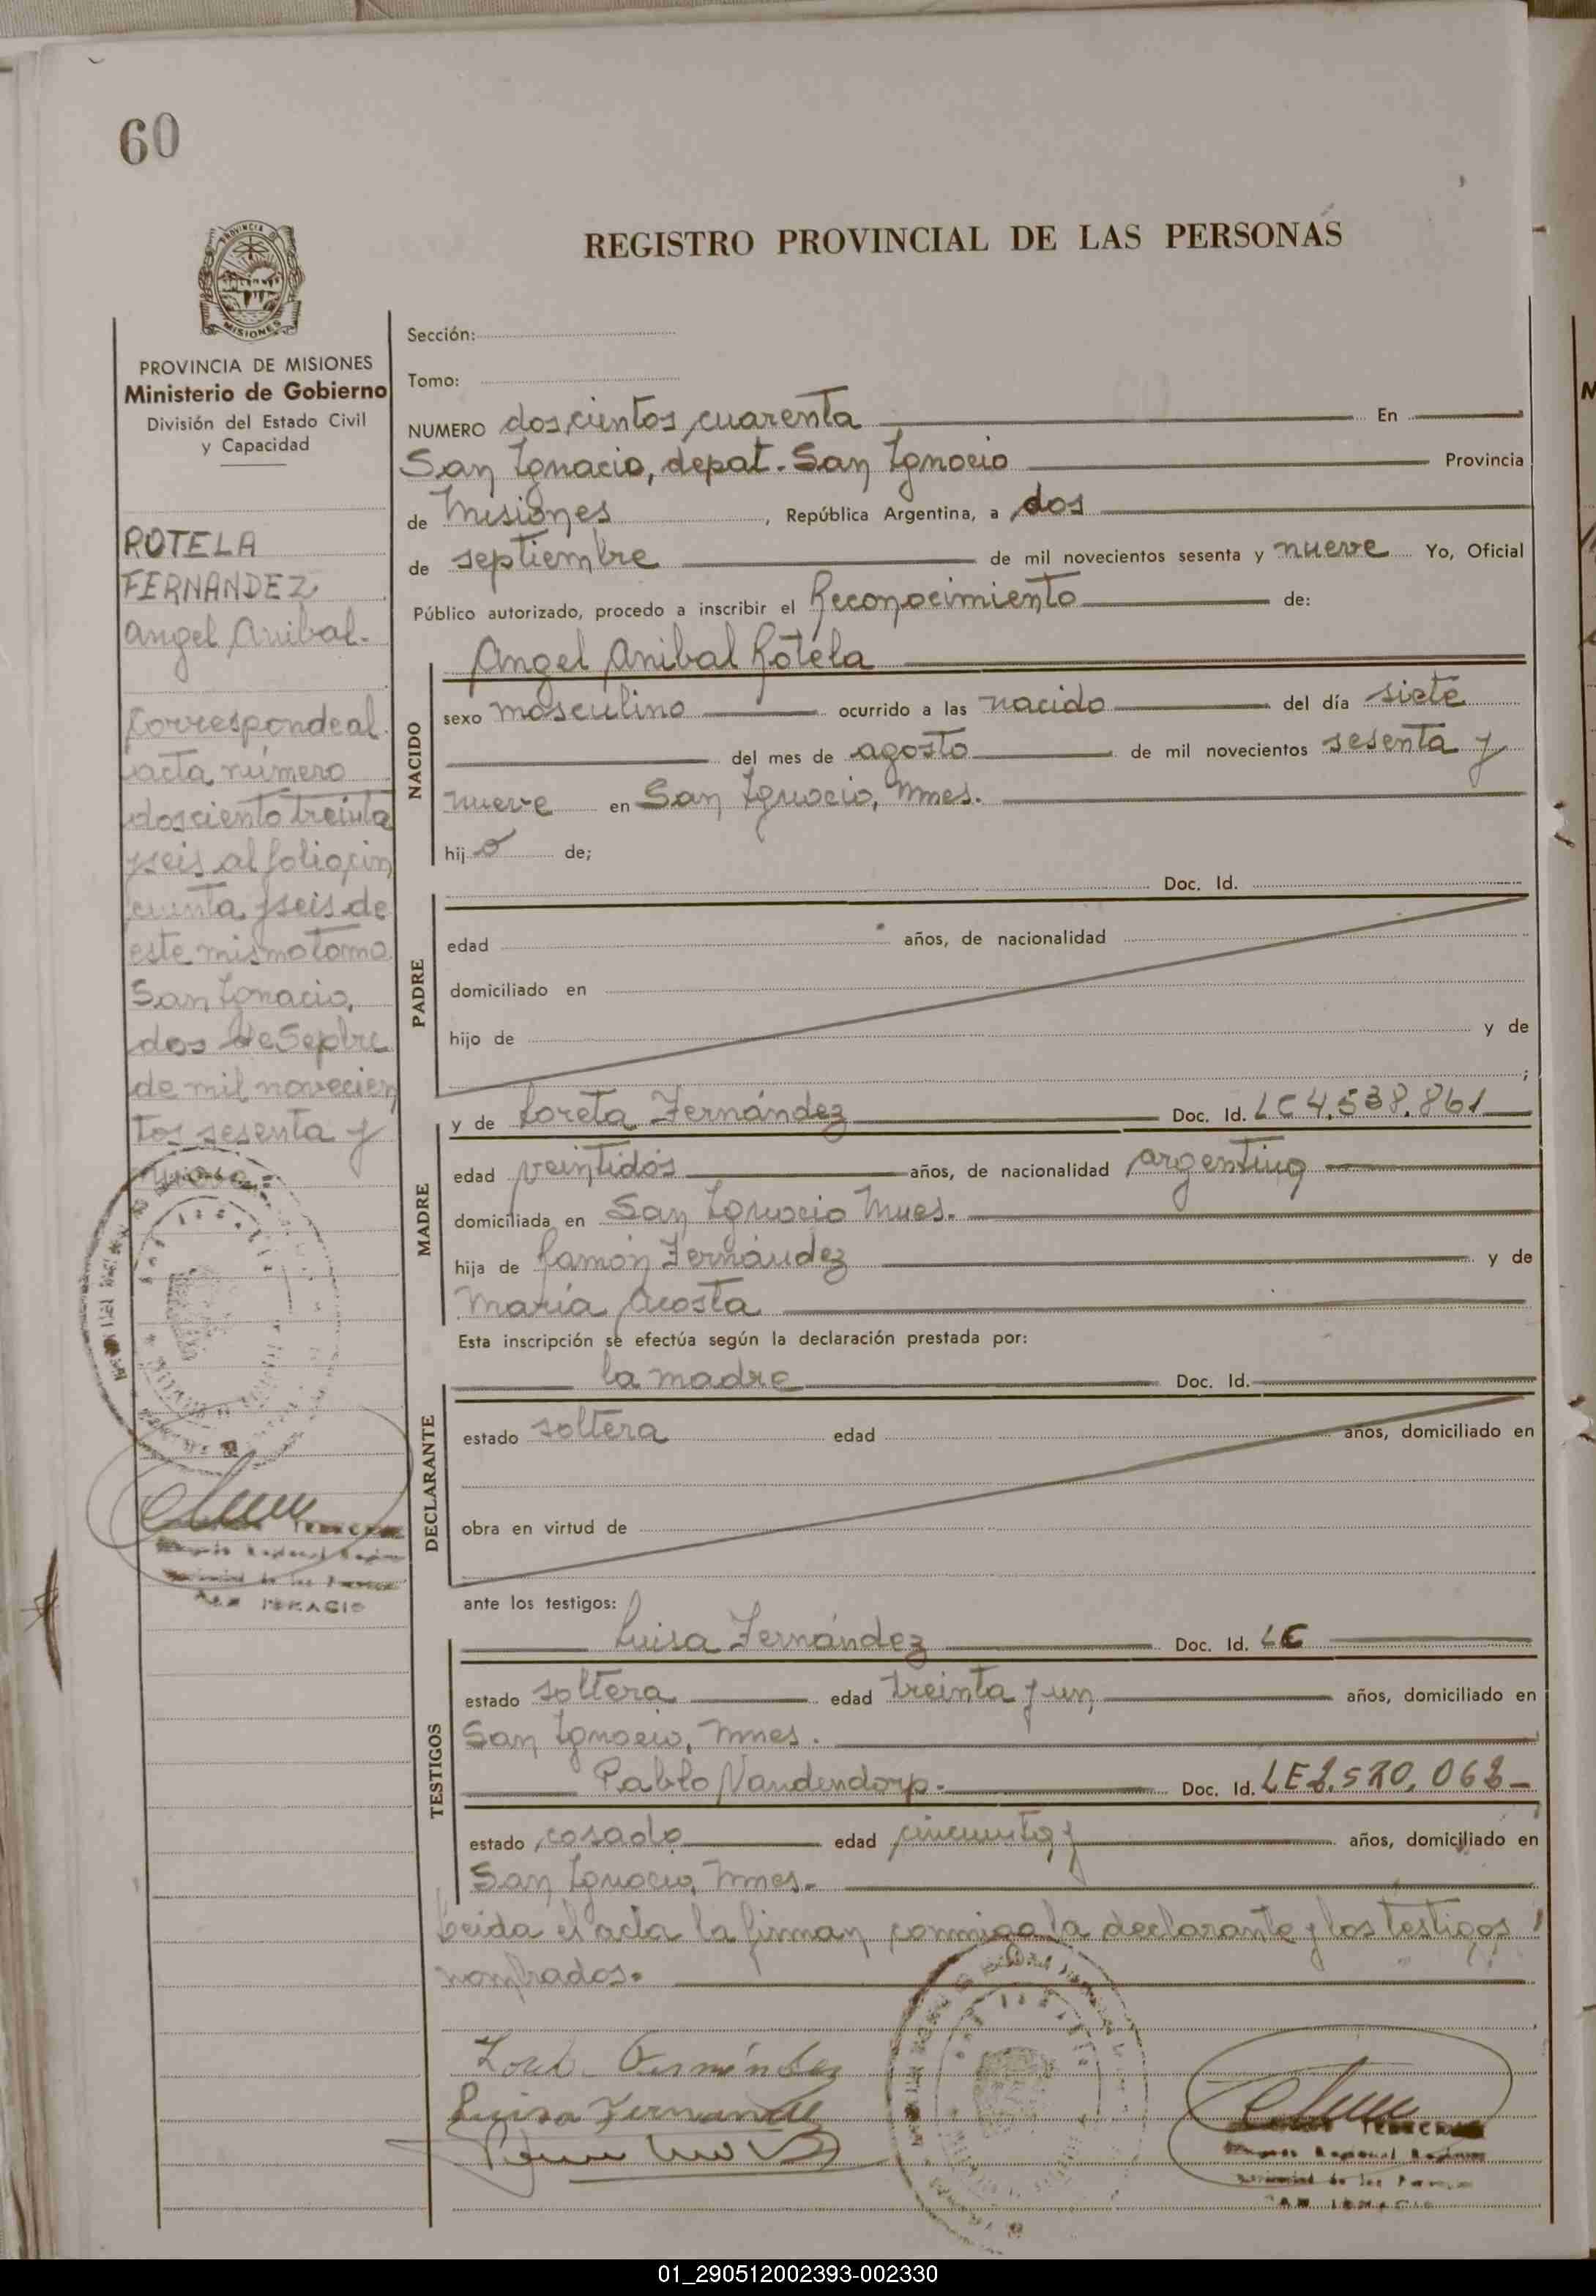 60
REGISTRO PROVINCIAL DE LAS PERSONAS
MISIONES
PROVINCIA DE MISIONES
Ministerio de Gobierno
División del Estado Civil
y Capacidad
ROTELA
FERNANDEZ
Angel Anibal.
Corresponde al
acta número
dosciento treinta
y seis al folio cin
cuenta y seis de
este mismo tomo.
San Ignacio,
dos de Sepbre
de mil novecien
tos sesenta y
nueve.
SAN IGNACIO
Sección:
Tomo:
NUMERO doscientos cuarenta En
San Ignacio, depat. San Ignacio Provincia
de Misiones, República Argentina, a dos
de septiembre de mil novecientos sesenta y nueve Yo, Oficial
Público autorizado, procedo a inscribir el Reconocimiento de:
NACIDO
Angel Anibal Rotela
sexo masculino ocurrido a las nacido del día siete
del mes de agosto de mil novecientos sesenta y
nueve en San Ignacio, Mnes.
hijo de;
PADRE
Doc. Id.
edad años, de nacionalidad
domiciliado en
hijo de y de
;
MADRE
y de Loreta Fernández Doc. Id. LC 4.538.861
edad veintidós años, de nacionalidad argentina
domiciliada en San Ignacio Mnes.
hija de Ramón Fernández y de
María Acosta
Esta inscripción se efectúa según la declaración prestada por:
DECLARANTE
la madre Doc. Id.
estado soltera edad años, domiciliado en
obra en virtud de
ante los testigos:
TESTIGOS
Luisa Fernández Doc. Id. LC
estado soltera edad treinta y un años, domiciliado en
San Ignacio, Mnes.
Pablo Vandendorp. Doc. Id. LE
estado casado edad cincuenta y años, domiciliado en
San Ignacio, Mnes.
Leida el acta la firman conmigo la declarante y los testigos
nombrados.
Fernández
Luisa Fernandez
01_290512002393-002330